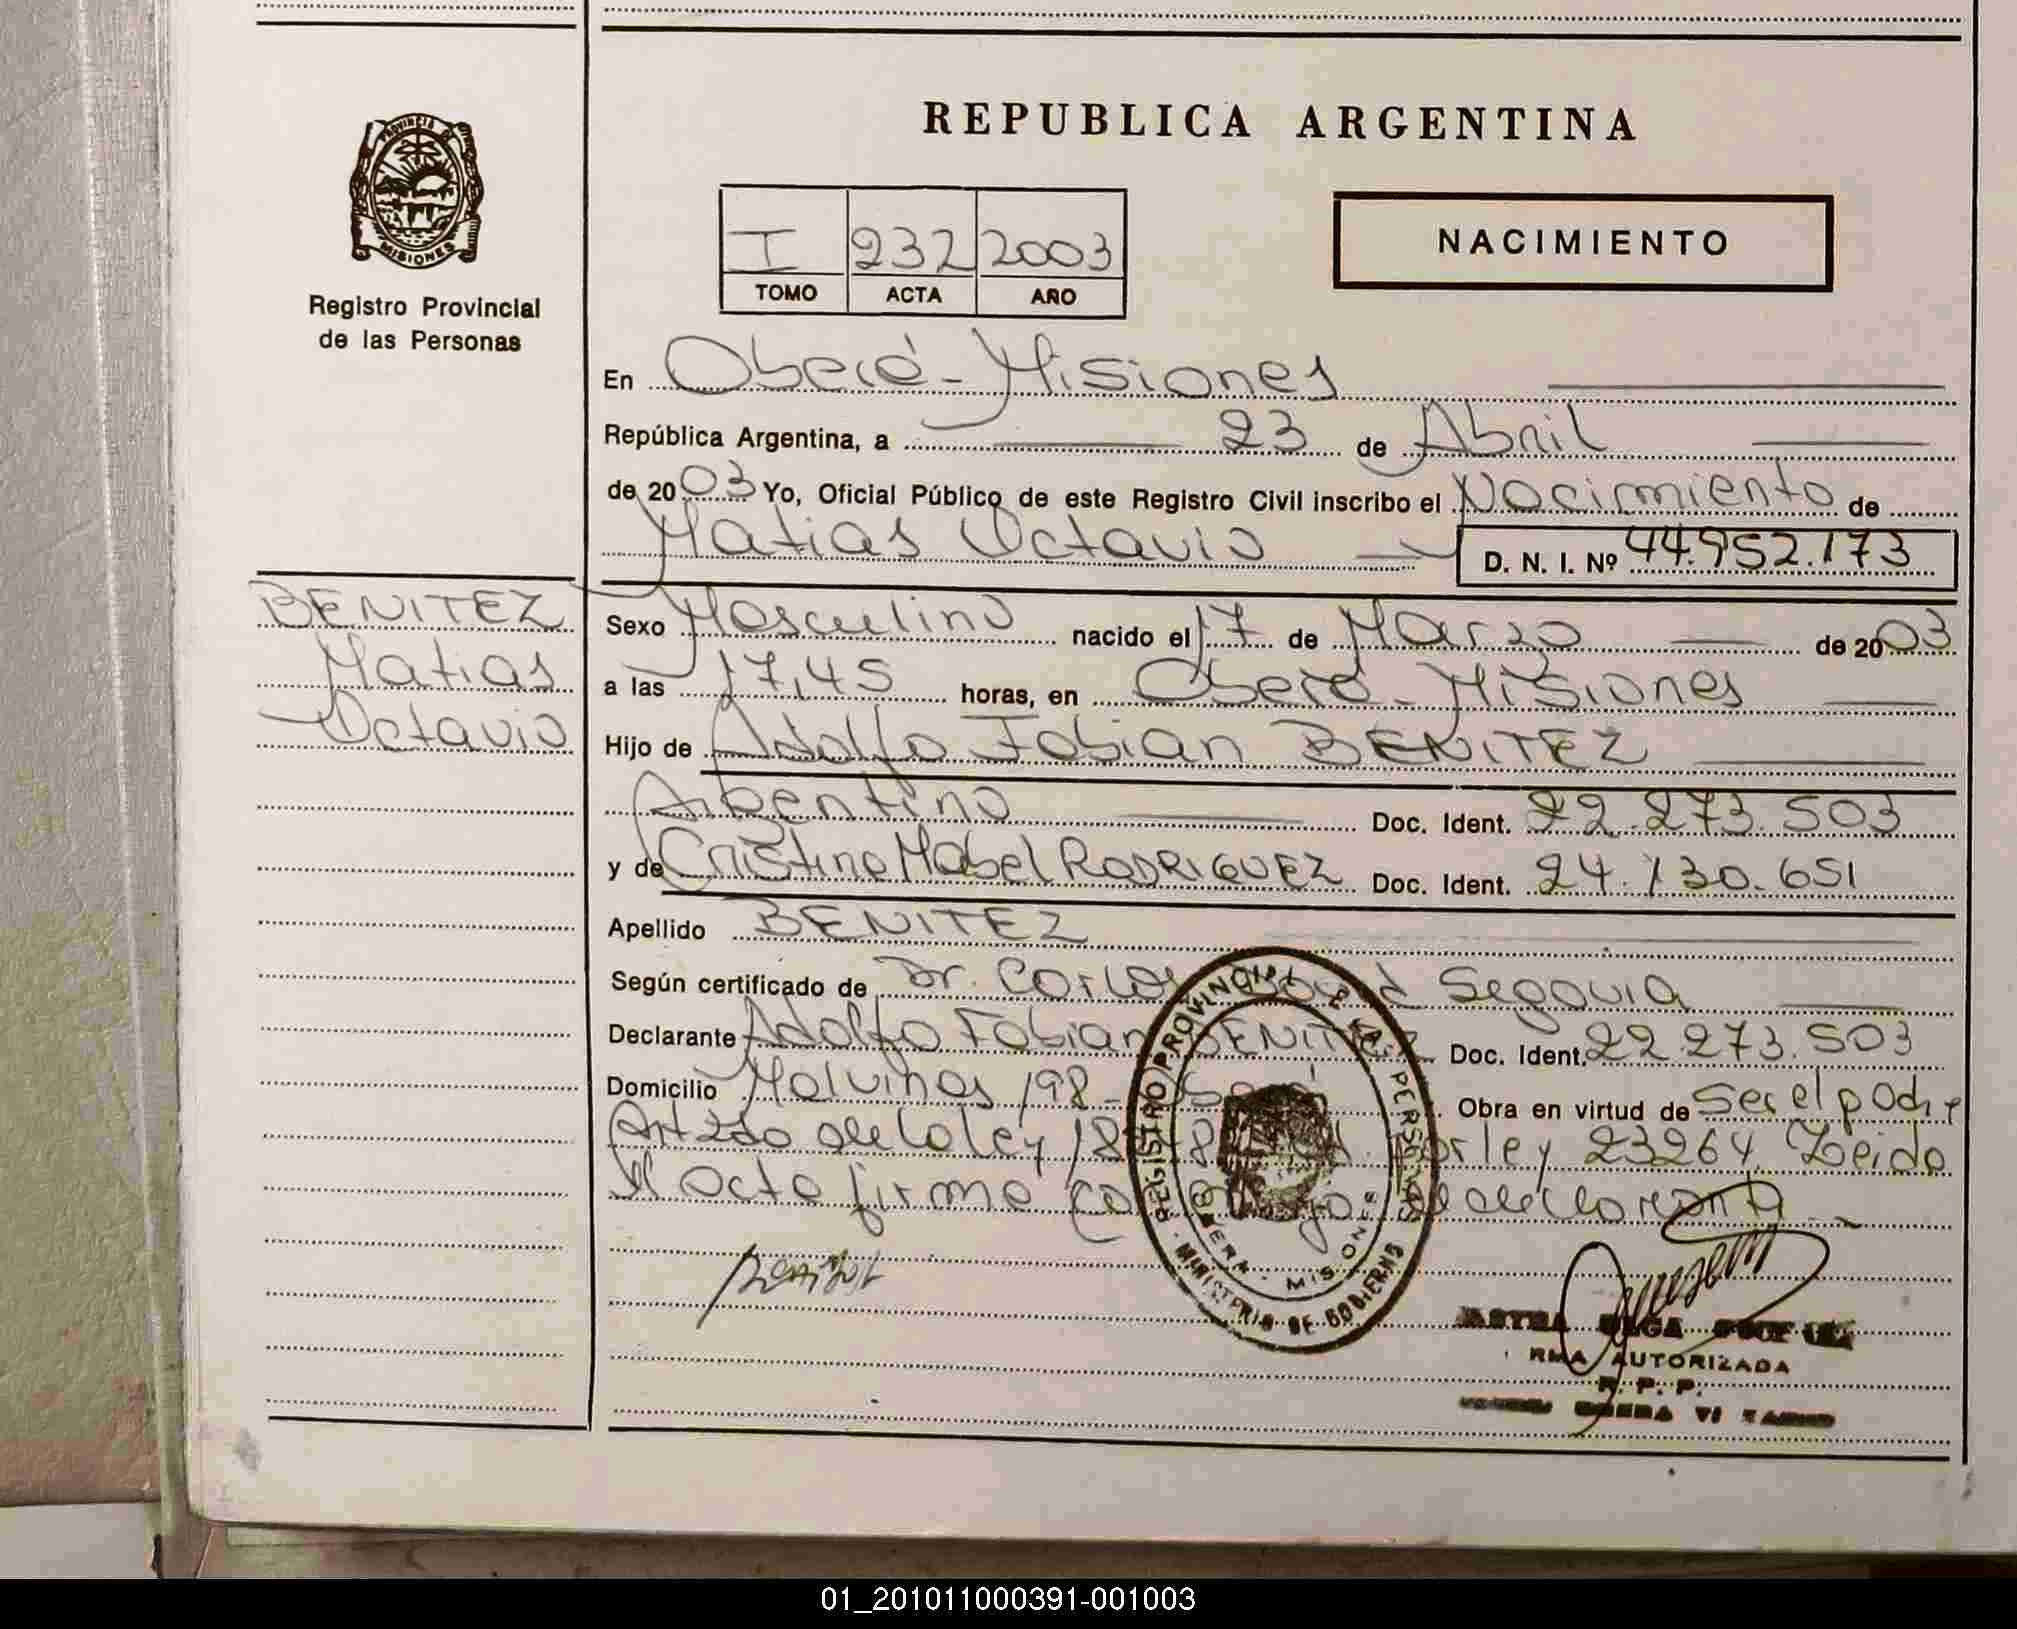 REPUBLICA ARGENTINA
PROVINCIA DE
MISIONES
Registro Provincial
de las Personas
I 232 2003
TOMO ACTA AÑO
NACIMIENTO
En Oberá - Misiones
República Argentina, a 23 de Abril
de 2003 Yo, Oficial Público de este Registro Civil inscribo el Nacimiento de
Matias Octavio D. N. I. Nº 44.952.173
BENITEZ
Matias
Octavio
Sexo Masculino nacido el 17 de Marzo de 2003
a las 17,45 horas, en Oberá - Misiones
Hijo de Adolfo Fabian BENITEZ
Argentino Doc. Ident. 22.273.503
y de Cristina Mabel RODRIGUEZ Doc. Ident. 24.130.651
Apellido BENITEZ
Según certificado de Dr. Carlos Segovia
Declarante Adolfo Fabian BENITEZ Doc. Ident. 22.273.503
Domicilio Malvinas 198 - Obra en virtud de ser el padre
Art 280 de la ley por ley 23264 Leida
el acta firma el declarante
REGISTRO PROVINCIAL DE LAS PERSONAS
MINISTERIO DE GOBIERNO
MISIONES
Benitez
AUTORIZADA
R. P. P.
01_201011000391-001003